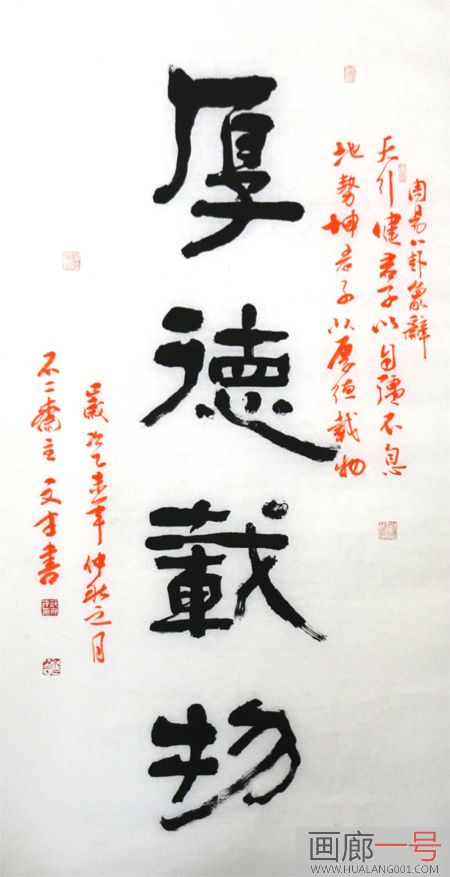 周易八卦象辞
天行健君子以自强不息
地势坤君子以厚德载物
厚德載物
歲次乙未年仲秋之月
不二齋主文才書
画廊一号
WWW.HUALANG001.COM